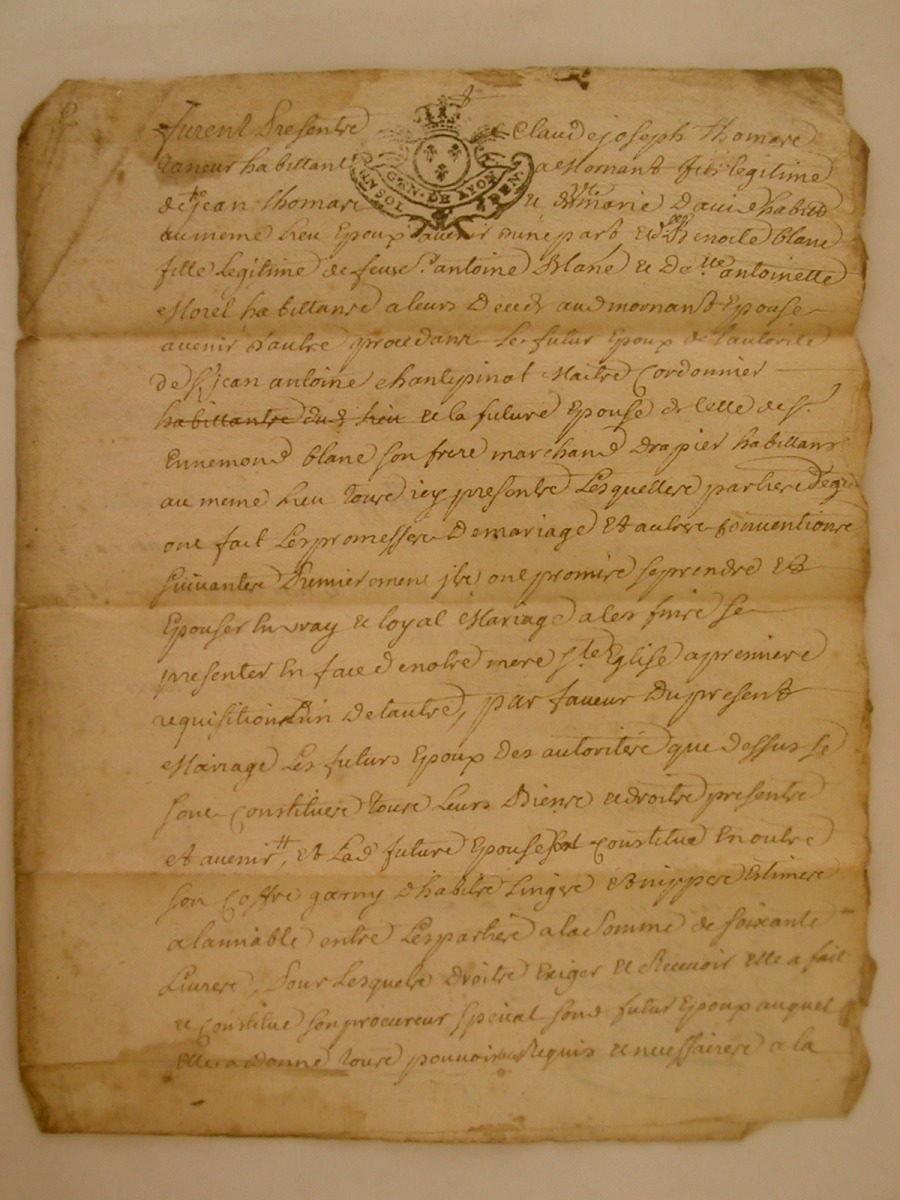 furent presents Claude joseph thomas
taneur habittant a Mornant fils legitime
de sr jean thomas et dlle marie david habitts
au meme lieu Epoux avenir d'une part et dlle Benoite blanc
fille Legitime de feus sr antoine Blanc et Delle antoinette
Morel habittants a leurs Deceds aud mornant Epouse
avenir d'autre procedans le futur Epoux de l'autorité
de sr jean antoine chantepinot Maitre Cordonnier
habittants dud lieu et la future Epouse de celle de sr
Ennemond blanc son frere marchand Drapier habittant
au meme lieu tous icy presents Lesquelles parties
ont fait Les promesses De mariage Et autres conventions
suivantes Premierement ils ont promis se prendre Et
Epouser En vray et loyal Mariage a ces fins se
presenter En face de notre mere ste Eglise a premiere
requisition L'un de l'autre, par faveur Du present
Mariage Les futurs Epoux Des autorités que dessus se
sont Constitués tous Leurs Biens et droits presents
et avenir, Et Lad future Epouse s'est constitué En outre
son Coffre garny d'habits Linges Et nippes Estimés
a l'amiable entre Les parties a la somme de soixante
Livres, Pour Lesquels Droits Exiger et Recevoir elle a fait
et constitué son procureur special sond futur Epoux auquel
elle a donné tous pouvoirs Requis et necessaires a la
GEN. DE LYON